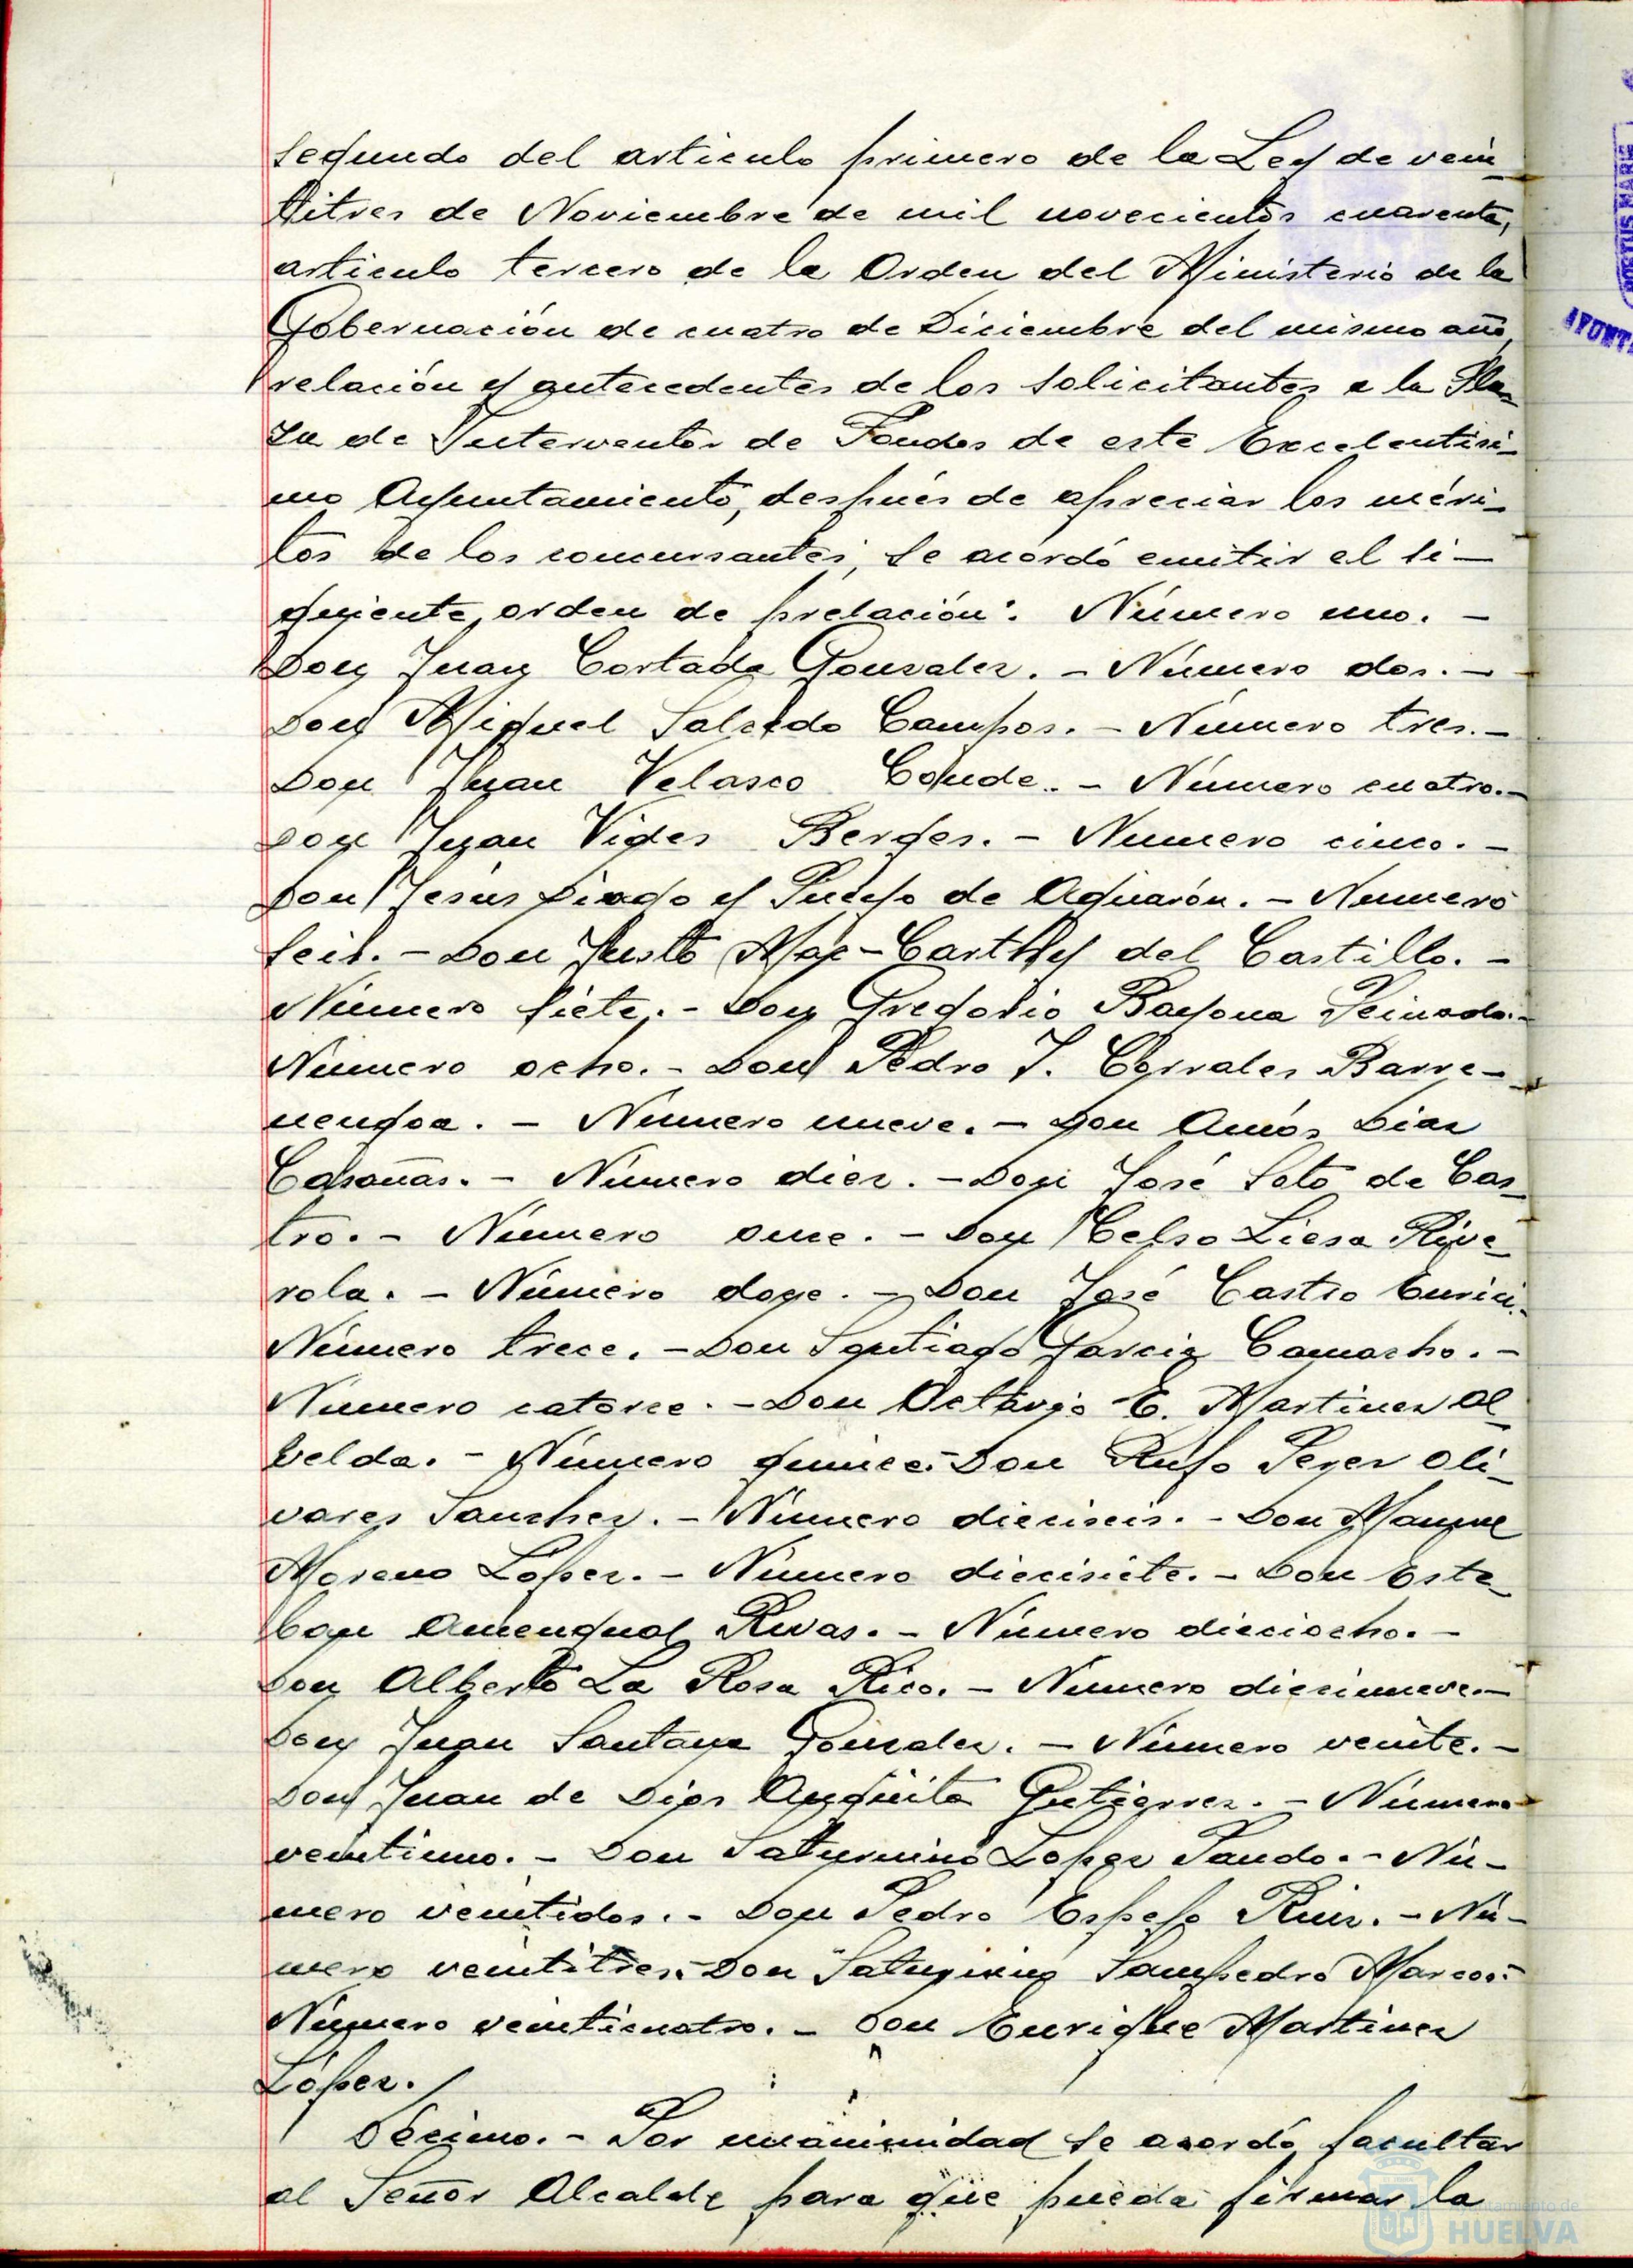 segundo del articulo primero de la Ley de vein_
titres de Noviembre de mil novecientos cuarenta,
articulo tercero de la Orden del Ministerio de la
Gobernación de cuatro de Diciembre del mismo año,
relación y antecedentes de los solicitantes a la Pla_
za de Interventor de Fondos de este Excelentisi_
mo Ayuntamiento, después de apreciar los méri_
tos de los concursantes, se acordó emitir el si-
guiente orden de prelación: Número uno. -
Don Juan Cortada Gonzalez. - Número dos. -
Don Miguel Salcedo Campos. - Número tres. -
Don Juan Velasco Conde. - Número cuatro. -
Don Juan Viges Berges. - Numero cinco. -
Don Jesus Diago y Pueyo de Aguarón. - Numero
seis. - Don Justo Mac-Carthy del Castillo. -
Número siete. - Don Gregorio Bayona Peinado. -
Número ocho. - Don Pedro J. Corrales Barre-
nengoa. - Número nueve. - Don Amós Diaz
Casañas. - Número diez. - Don José Soto de Cas_
tro. - Número once. - Don Celso Liesa Rive_
rola. - Número doce. - Don José Castro
Número trece. - Don Santiago Garcia Camacho. -
Número catorce. - Don Octavio E. Martinez Al_
belda. - Número quince. - Don Rufo Perez Oli_
vares Sanchez. - Número dieciseis. - Don Manuel
Moreno López. - Número diecisiete. - Don Este_
ban Amengual Rivas. - Número dieciocho. -
Don Alberto La Rosa Rico. - Número diecinueve. -
Don Juan Santana Gonzalez. - Número veinte. -
Don Juan de Dios Anguita Gutierrez. - Número
veintiuno. - Don Saturnino Lopez Pando. - Nú-
mero veintidos. - Don Pedro Espejo Ruiz. - Nú-
mero veintitres. - Don Saturnino Sampedro Marcos. -
Número veinticuatro. - Don Enrique Martinez
López.
Décimo. - Por unanimidad se acordó facultar
al Señor Alcalde para que pueda firmar la
PORTUS MARIS
AYUNT
Ayuntamiento de
HUELVA